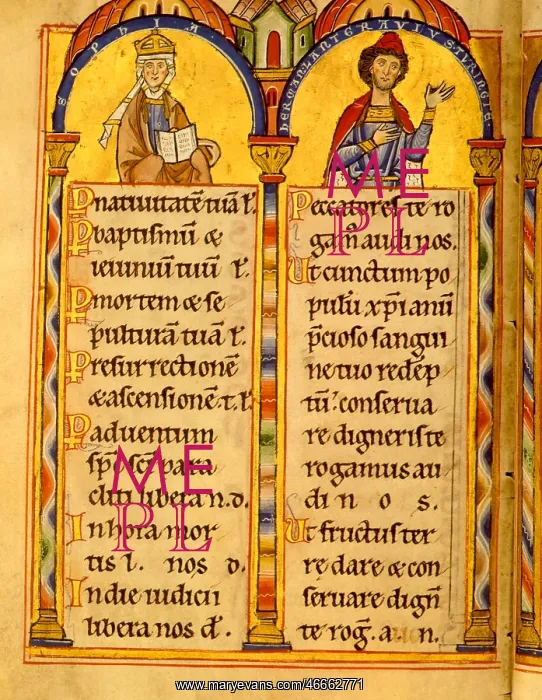 SOPHIA
HERMANLANTGRAVIVSTVRINGIE
P nativitatē tuā l.
P baptismū &
ieiuniū tuū l.
P mortem & se
pulturā tuā l.
P resurrectionē
& ascensionē t. l.
P adventum
sp̄s sc̄i para
cliti libera n. d.
In hora mor
tis l. nos d.
In die iudicii
libera nos d̄.
Peccatores te ro
gam̄ audi nos.
Ut cunctum po
pulū xp̄ianū
p̄cioso sangui
ne tuo redēp
tū conserva
re digneris te
rogamus au
di n o s.
Ut fructus ter
re dare & con
servare dign̄
te rog̃. a n.
ME
PL
ME
PL
www.maryevans.com/46662771